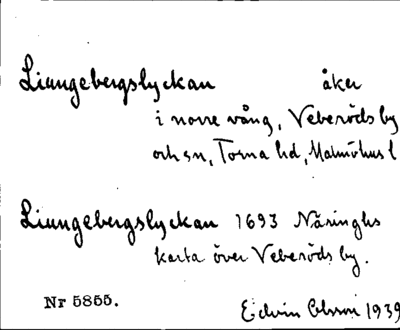 Liungebergslyckan åker
i norre vång, Veberöds by
och sn, Torna hd, Malmöhus l
Liungebergslyckan 1693 Näringhs
karta över Veberöds by.
Nr 5855.
Edvin Olsson 1939